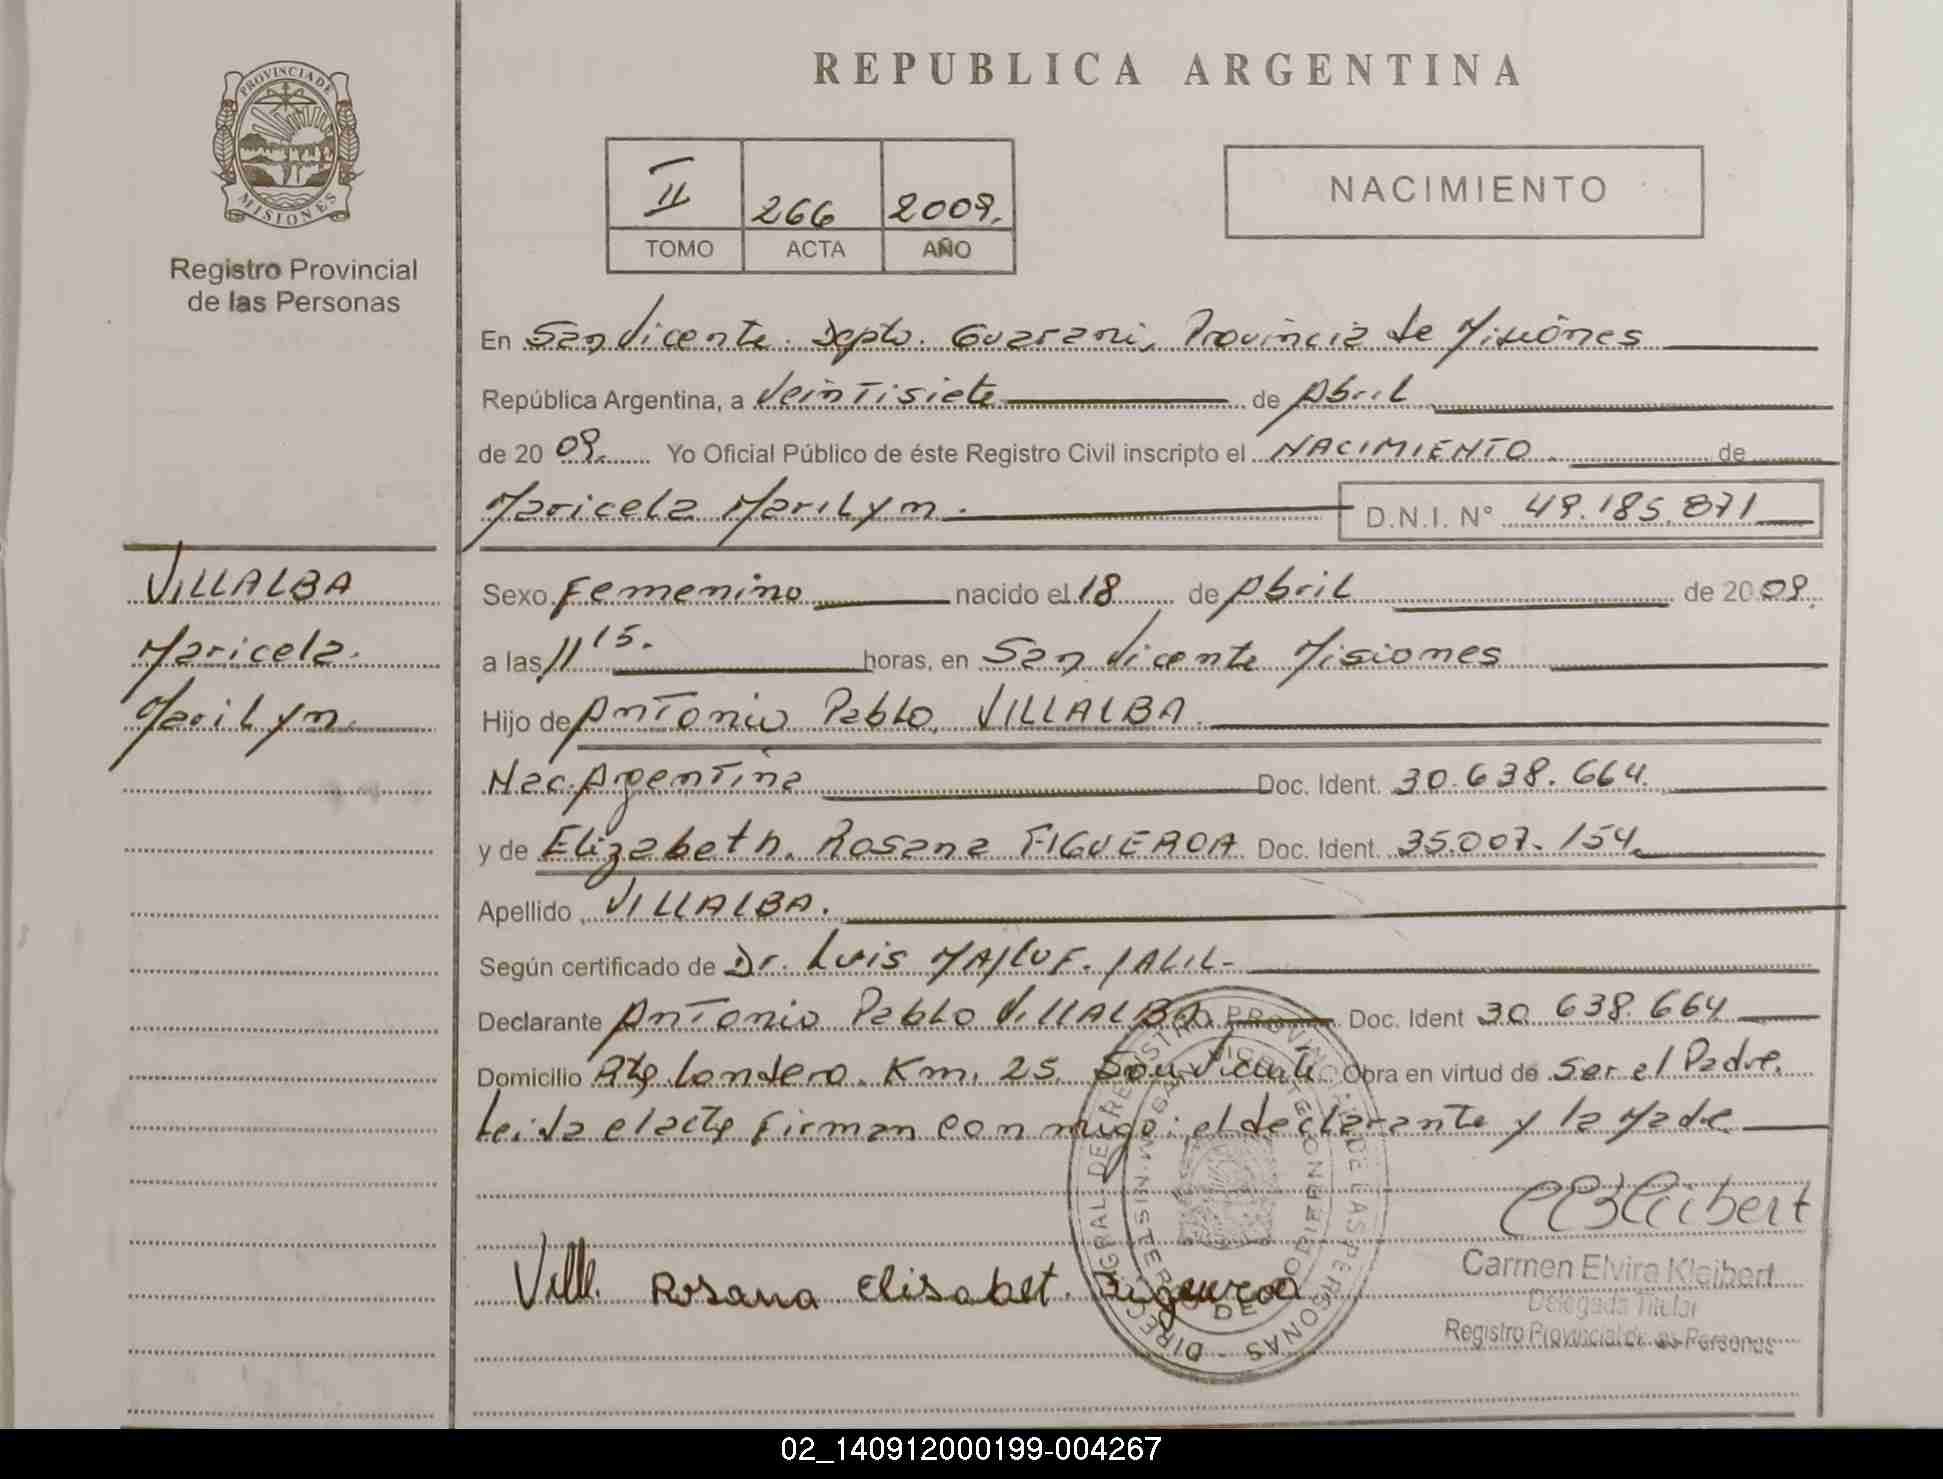 REPUBLICA ARGENTINA
PROVINCIA DE
MISIONES
Registro Provincial
de las Personas
II 266 2009.
TOMO ACTA AÑO
NACIMIENTO
En San Vicente. Depto. Guarani, Provincia de Misiones
República Argentina, a Veintisiete de Abril
de 20 09. Yo Oficial Público de éste Registro Civil inscripto el NACIMIENTO. de
Maricela Marilyn. D.N.I. N° 49.185.871
VILLALBA
Maricela.
Marilyn.
Sexo Femenino nacido el 18 de Abril de 20 09.
a las 11 15. horas, en San Vicente Misiones
Hijo de Antonio Pablo, VILLALBA.
Nac. Argentina Doc. Ident. 30.638.664.
y de Elizabeth. Rosana FIGUEROA Doc. Ident. 35.007.154.
Apellido VILLALBA.
Según certificado de Dr. Luis MAJLUF. JALIL-
Declarante Antonio Pablo VILLALBA. Doc. Ident 30 638.664
Domicilio Londero. Km. 25. San Vicente Obra en virtud de Ser el Padre.
Leida el acta Firman con migo: el declarante y la Madre
CEKleibert
Carmen Elvira Kleibert
Delegada Titular
Registro Provincial de las Personas
Vill. Rosana Elisabet. Figueroa
DIREC. GRAL. DEL REGISTRO PROVINCIAL DE LAS PERSONAS -
02_140912000199-004267